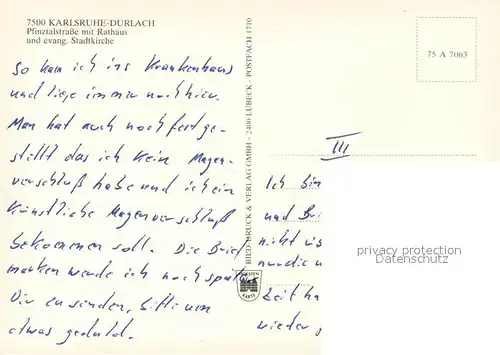 7500 KARLSRUHE-DURLACH
Pfinztalstraße mit Rathaus
und evang. Stadtkirche
So kam ich ins Krankenhaus
und liege immer noch hier.
Man hat auch noch festge-
stellt das ich kein Magen-
verschluß habe und ich ein
Künstliche Magenverschluß
bekommenen soll. Die Brief
marken werde ich noch später
Dir zusenden, bitte um
etwas geduld.
BILD-DRUCK & VERLAG GMBH - 2400 LÜBECK - POSTFACH 1710
75 A 7063
III
Ich bin
und Bri
nicht
Zeit ha
wieder
privacy protection
Datenschutz